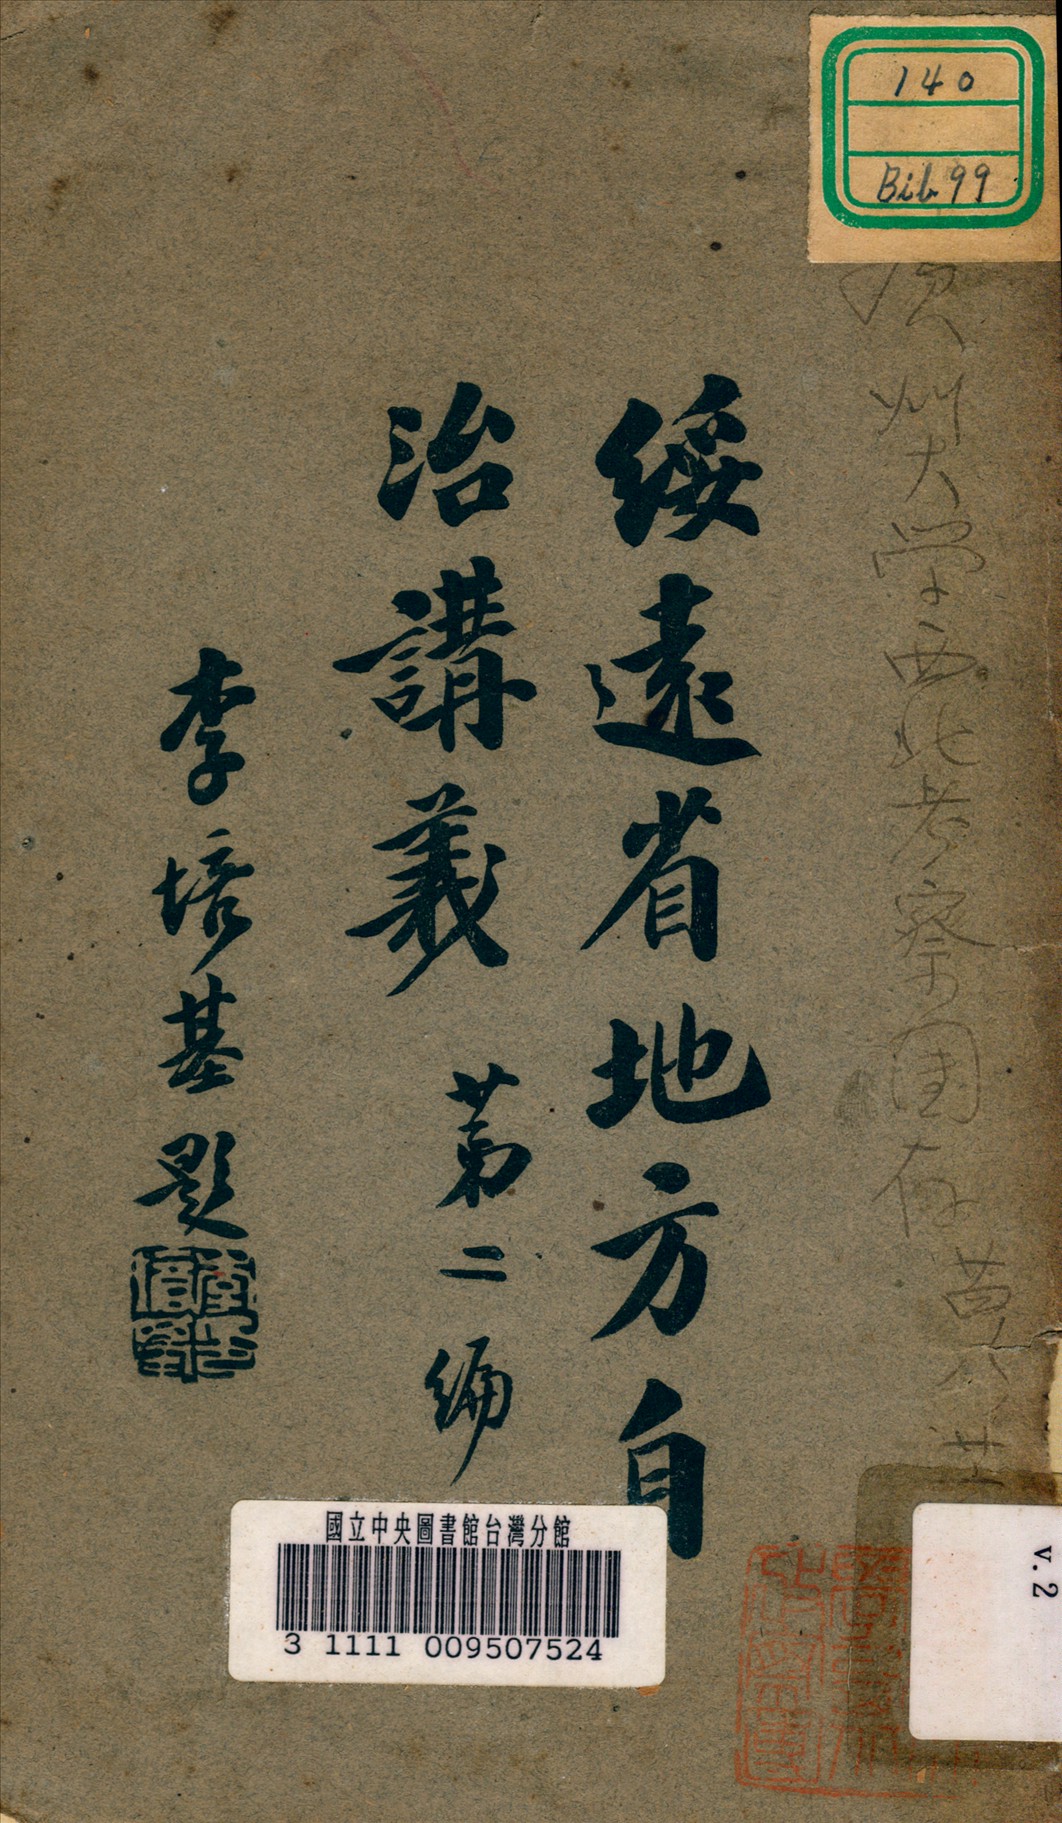 140
Bib 99
綏遠省地方自
治講義 第二編
李培基題
大学西北考察团存
國立中央圖書館台灣分館
3 1111 009507524
v.2